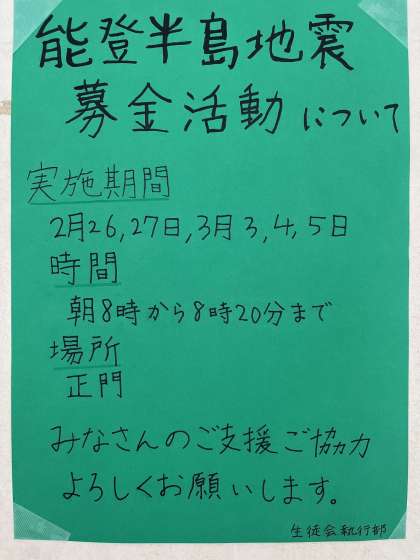 能登半島地震
募金活動について
実施期間
2月26,27日,3月3,4,5日
時間
朝8時から8時20分まで
場所
正門
みなさんのご支援ご協力
よろしくお願いします。
生徒会執行部